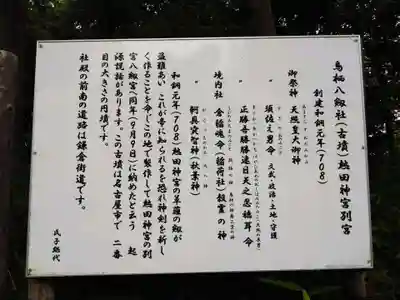 鳥栖八剱社(古墳)熱田神宮別宮
創建和銅元年(708)
御祭神 天照皇大御神
〃 須佐之男命 元気・政治・土地・守護
〃 正勝吾勝勝速日天之忍穂耳命
境内社 倉稲魂命(稲荷社)穀霊の神
〃 軻具突智神(秋葉神)
和銅元年(708)熱田神宮の草薙の剱が
盗難あい、これが帝に知られるを恐れ神剣を新し
く作ることを命じこの地で製作して熱田神宮の別
宮八剱宮へ同年(9月9日)に納めたと云う 起
源説話があります。この古墳は名古屋市で 二番
目の大きさの円墳です。
社殿の前南の道路は鎌倉街道です。
氏子総代